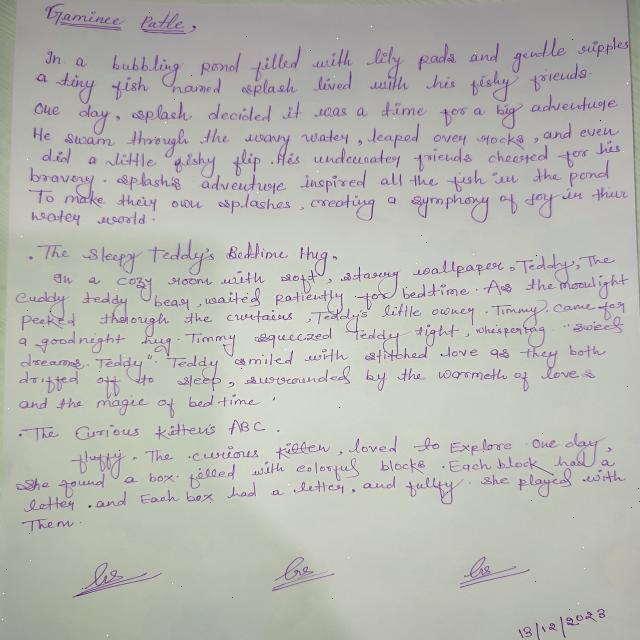 Gaminee Patle,
In a bubbling pond filled with lily pads and gentle ripples
a tiny fish named splash lived with his fishy friends.
One day, splash decided it was a time for a big adventure
He swam through the wavy water, leaped over rocks, and even
did a little fishy flip. His underwater friends cheered for his
bravery. splash's adventure inspired all the fish in the pond
To make their own splashes, creating a symphony of Joy in their
water world.
. The Sleepy Teddy's Bedtime Hug.
In a cozy room with soft, starry wallpaper, Teddy, The
Cuddy teddy bear, waited patiently for bedtime. As the moonlight
peeked through the curtains, Teddy's little owner. Timmy. came for
a goodnight hug. Timmy squeezed Teddy tight, whispering "sweet
dreams. Teddy". Teddy smiled with stitched love as they both
drifted off to sleep, surrounded by the warmeth of loves
and the magic of bedtime.
. The Curious Kitten's ABC.
fluffy. The curious kitten, loved to Explore. One day,
She found a box filled with colorful blocks. Each block had a
letter. and Each box had a letter, and fulfy. She played with
Them.
13/12/2023